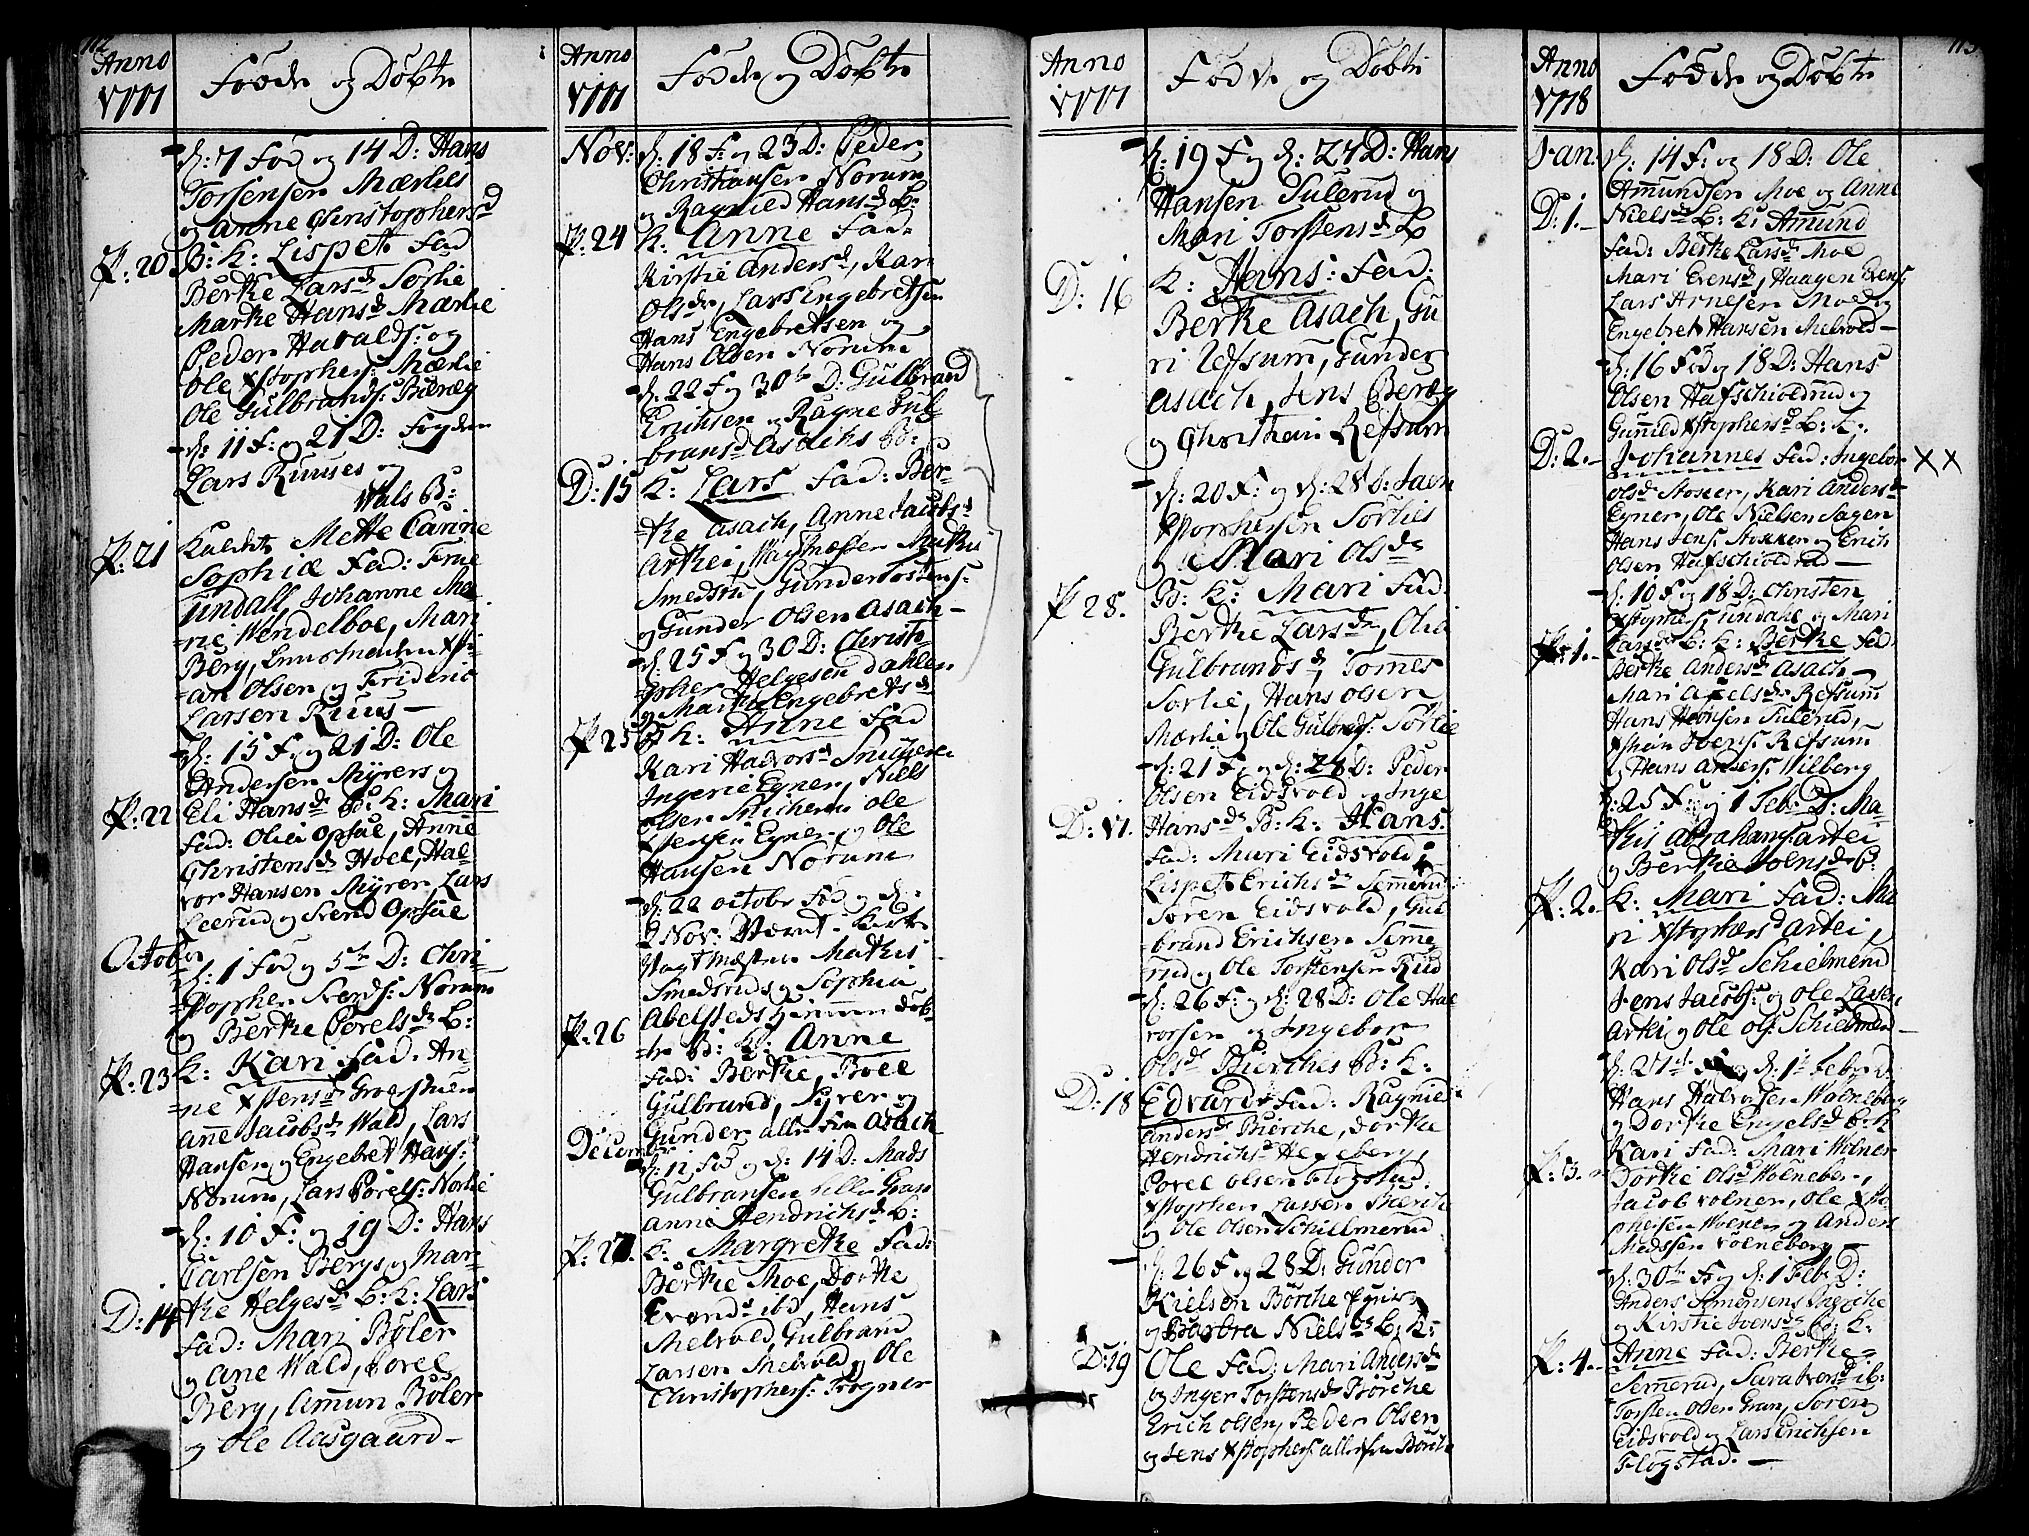 112
Anno
1777
Fødde og Døbte
d: 7 Fød og 14 D: Hans
Torsensen Mærlies
og Anne Christophersd
P: 20 B: K: Lispet Fad
Berthe Larsd Sørlie
Marthe Hansd Mærlie
Peder Havalds: og
Ole Xstophers: Mærlie
Ole Gulbrands: Bieræg
d: 11 F: og 21 D: Fogden
Lars Ruuses og
Wals B:
P: 21 Kaldet Mette Carine
Sophiæ Fad: Frue
Tindall, Johanne Ma
=rie Wendelboe, Mari
Berg, Xsti=
=an Olsen og Frideric
Larsen Ruus—
d: 15 F: og 21 D: Ole
Andersen Myrers og
P: 22 Eli Hansd B: K: Mari
Fad: Olia Opsal, Anne
Christensd Hoel, Hal=
vor Hansen Myrer, Lars
Leerud og Svend Opsal
October
d: 1 Fød og 5te D: Chri=
stopher Svends: Norum
og Berthe Povelsd B:
P: 23 K: Kari Fad: An=
=ne Xstensd Groestuen
Anne Jacobsd Wald, Lars
Hansen og Engebret Hans:
Norum, Lars Povels: Norlie
d: 10 F: og 19 D: Hans
Carlsen Bergs og Mar=
D: 14 the Helgesd B: K: Lars
Fad: Mari Bøler
og Ane Wald, Povel
Berg, Amun Bøler
og Ole Aasgaard—
Anno
1777
Fødde og Døbte
Nov: d: 18 F: og 23 D: Peder
Christiansen Norum
og Ragnild Hansd B:
P: 24 K: Anne Fad:
Kirstie Andersd, Kari
Olsdr, Lars Engebretsen
Hans Engebretsen og
Hans Olsen Norum
d: 22 F og 30te D: Gulbrand
Erichsen og Ragne Gul=
bransd Asachs B:
D: 15 K: Lars Fad: Ber=
=the Asach, Anne Jacobsd
Arthei, Mathis
Smedsrud, Gunder Tostens:
og Gunder Olsen Asach—
d: 25 F og 30 D: Christ=
=opher Helgesen Dahlen
og Marthe Engebretsd
P: 25 B: K: Anne Fad
Kari Halvorsd
Ingerie Egner, Niels
Olsen Ole
Egner og Ole
Hansen Norum
d: 22 octobr Fød og d:
2 Nov:
Mathis
Smedsruds og Sophia
Abelsteds hiemmedøb=
P: 26 =te B: K: Anne
Fad: Berthe, Boel
Gulbrand, Syver og
Gunder alle fra Asach
December
d: 11 Fød og d: 14 D: Mads
Gulbransen Lille Gran
Anne Hendrichsd B:
P: 27. K: Margrethe Fad:
Berthe Moe, Dorthe
Evensd ibd, Hans
Melvold, Gulbrand
Larsen Melvold og Ole
Christophers: Trogner
Anno
1777
Fødde og Døbte
d: 19 F og d: 24 D: Hans
Hansen Sulerud og
Mari Torstensd B
D: 16 K: Hans: Fad:
Berthe Asach, Gu
ri Refsum, Gunder
Asach, Jens Beræg
og Christian Refsum
d: 20 F: og d: 28 D: Joen
Xstophersen Sørlies
og Mari Olsdr
P 28. B: K: Mari Fad
Berthe Larsdr, Olia
Gulbrandsd, Tomes
Sørlie, Hans Olsen
Mærlie og Ole Gulbrds: Sørlie
d: 21 F: og d: 28 D: Peder
Olsen Eidsvold og Inge
D: 17. Hansdr B: K: Hans:
Fad: Mari Eidsvold
Lispet Erichsdr Semerud
Søren Eidsvold, Gul
=brand Erichsen Seme
rud og Ole Torstensen Rud
d: 26 F: og d: 28 D: Ole Hal
vorsen og Ingebor
Olsdr Bierches B: K:
D: 18 Edvard Fad: Ragnild
Andersd Bierche, Dorthe
Hendrichsd Hexeberg,
Povel Olsen Flogstad
Xstopher Larsen Bierche
og Ole Olsen Schillmerud
d: 26 F og 28 D: Gunder
Nielsen Børche
og Barbra Nielsdr B: K:
D: 19 Ole Fad: Mari Andersdr
og Inger Torstensdr Børche
Erich Olsen, Peder Olsen
og Jens Xstophers: alle fra Børche
113
Anno
1778
Fødde og Døbte
Jan. d: 14 F: og 18 D: Ole
Amundsen Moe og Anne
D: 1.— Nielsdr B: K: Amund
Fad: Berthe Larsdr Moe
Mari Evensd, Haagen Evens
Lars Arnesen Moe og
Engebret Hansen Melvold—
d: 16 Fød og 18 D: Hans
Olsen Hafschioldrud og
Gunild Xstophersd B: K:
D: 2.— Johannes Fad: Ingebor XX
Olsd Stocker, Kari Andersd
Egner, Ole Nielsen Sagen
Hans Jens: Stokker og Erich
Olsen Hafschioldrud—
d: 10 F og 18 D: Christen
Xstophers: Sundahl og Mari
P: 1.— Larsdr B: K: Berthe Fad.
Berthe Andersdr Asach—
Mari Axelsdr Refsum
Hans Hansen Sulerud,
Xstian Joens: Refsum
og Hans Anders: Wilberg
d: 25 F: og 1 Feb: D: Ma=
this Abrahams: Artei
og Berthe Joensdr B:
P: 2.— K: Mari Fad: Ma
ri Xstophersd Artei,
Kari Olsd Schielmerud
Jens Jacobs: og Ole Larsen
Artei og Ole Ols: Schielmerud—
d: 27de F og d: 1te Feb: D
Hans Halvorsen Wolneberg
og Dorthe Engelsd B: K
P: 3.— Kari Fad: Mari Wolner
Dorthe Olsd Wolneberg,
Jacob Volner, Ole Xsto
phersen Wolner og Anders
Madssen Volneberg—
d: 30te F: og d: 1 Feb: D:
Anders Simensens
og Kirstie Joensdr B: K:
P: 4.— Anne Fad: Berthe
Semerud, Sara Ivorsd ib:
Torsten Olsen Gran, Søren
Eidsvold og Lars Erichsen
Flogstad.—